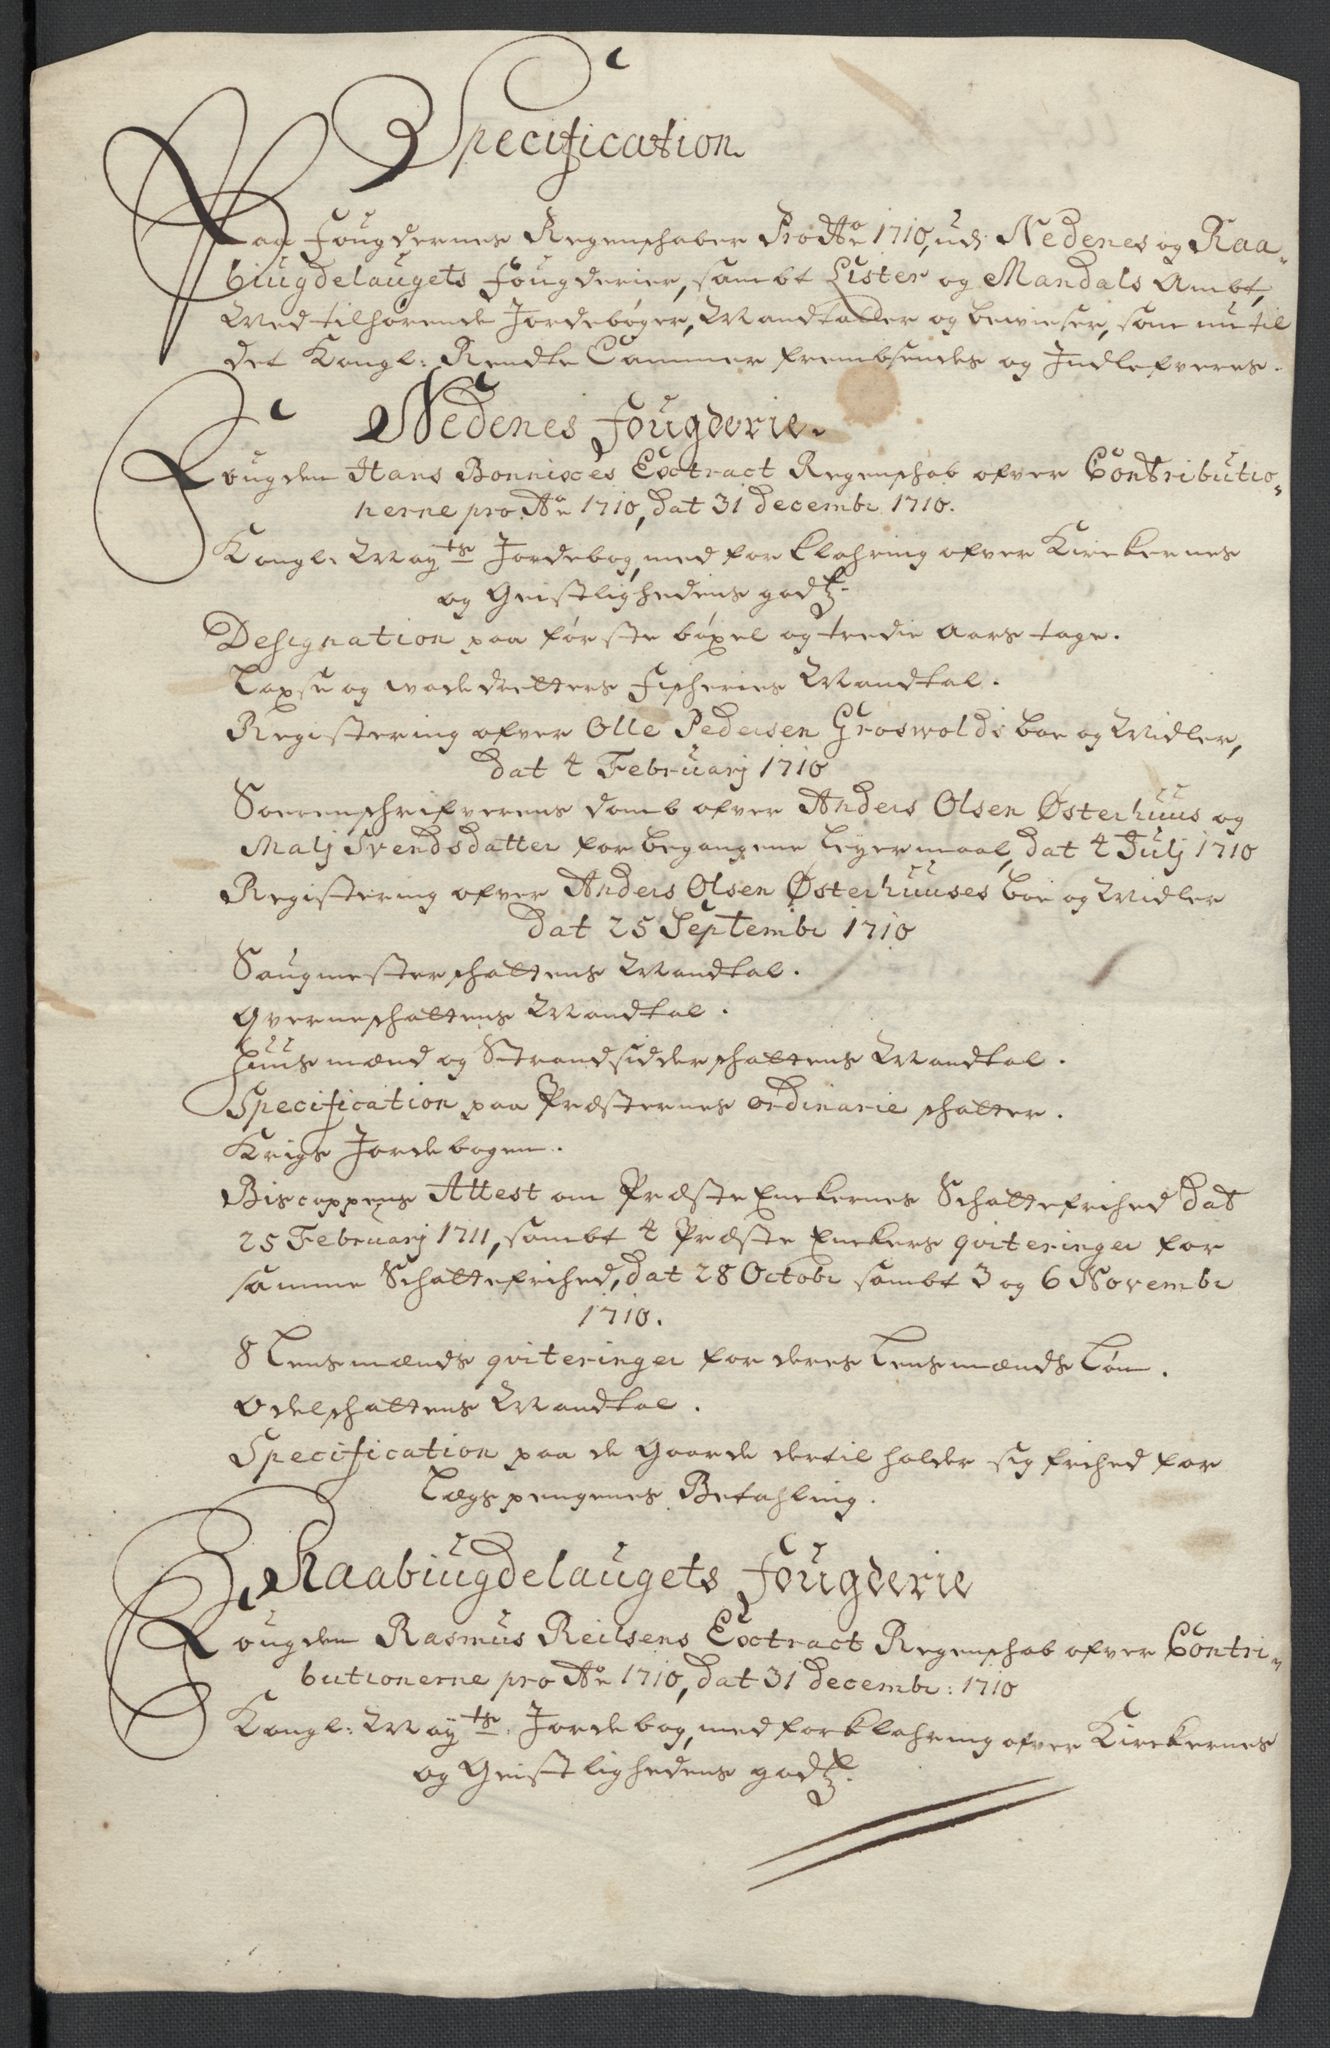 Specification
Paa Fougdernes Regenschaber Pro Ao 1710, ud Nedenes og Raa-
biugdelaugets Fougderier, sambt Lister og Mandals Ambt,
Med tilhørende Jordebøger, Mandtaller og bewiser, som nu til
det Kongl: Rendte Cammer frembsendes og Indlefveres.
Nedenes Fougderie.
Fougden Hans Bonnixes Extract Regenschab ofver Contributio-
nerne pro Ao 1710, dat 31 decembr 1710.
Kongl: May:ts Jordebog, med forklahring ofver Kirckernes
og Geistlighedens godtz.
Designation paa første bøxel og tredie Aars tage.
Laxse og wadedretters Fischeries Mandtal.
Registering ofver Olle Pedersen Groswolds boe og Midler,
dat 4 Februarj 1710
Sorenschrifverens domb ofver Anders Olsen Østerhuus og
Malj Svendsdatter for begangene Leyermaal, dat 4 Julj 1710
Registering ofver Anders Olsen Østerhuuses boe og Midler
dat 25 Septembr 1710
Saugmesterschattens Mandtal.
Qverneschattens Mandtal.
Huusmænd og Strandsidderschattens Mandtal.
Specification paa Præsternes ordinarie schatter.
Krigs Jordebogen.
Biscoppens Attest om Præste Enckernes Schattefrihed dat
25 Februarj 1711, sambt 4 Præste Enckers qviteringer for
samme Schattefrihed, dat 28 Octobr sambt 3 og 6 Novembr
1710.
8 Lensmænds qviteringer for deres Lensmænds Løn.
Odelschattens Mandtal.
Specification paa de Gaarde dertil holder sig frihed for
Lægspengenes Betahling.
Raabiugdelaugets Fougderie
Fougden Rasmus Reilsens Extract Regenschab ofver Contri-
butionerne pro Ao 1710, dat 31 decembr: 1710
Kongl: May:ts Jordebog, med forklahring ofver Kirckernes
og Geistlighedens godtz.